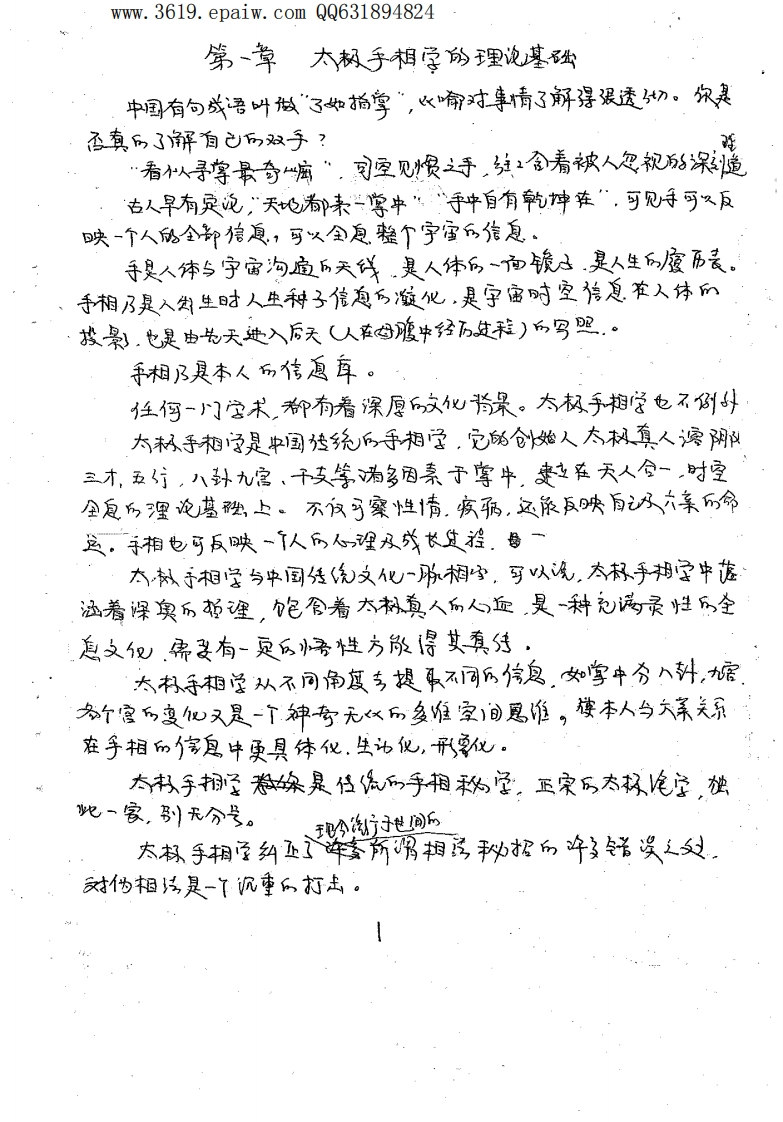 www.3619.epaiw.com QQ631894824
第一章 太极手相学的理论基础
中国有句成语叫做"了如指掌",比喻对事情了解得很透彻。你是
否真的了解自己的双手?
"看似寻常最奇崛",司空见惯之手,往往含着被人忽视的深刻道理
古人早有灵说,"天地都来一掌中""手中自有乾坤在",可见手可以反
映一个人的全部信息,可以全息整个宇宙的信息。
手是人体与宇宙沟通的天线,是人体的一面镜子,是人生的履历表。
手相乃是人出生时人生种子信息的演化,是宇宙时空信息在人体的
投影,也是由先天进入后天(人在母腹中经历过程)的写照。
手相乃是本人的信息库。
任何一门学术,都有着深厚的文化背景。太极手相学也不例外
太极手相学是中国传统的手相学,它的创始人太极真人溶阴阳
三才,五行,八卦九宫、干支等诸多因素于掌中,建立在天人合一,时空
全息的理论基础上。不仅可察性情,疾病,还能反映自己及六亲的命
运。手相也可反映一个人的心理及成长过程,
太极手相学与中国传统文化一脉相承,可以说,太极手相学中蕴
涵着深奥的哲理,饱含着太极真人的心血,是一种充满灵性的全
息文化,需要有一定的悟性方能得其真传。
太极手相学从不同角度去提取不同的信息,如掌中分八卦,九宫,
各个宫的变化又是一个神奇无比的多维空间思维。使本人与六亲关系
在手相的信息中更具体化,生动化,形象化。
太极手相学是传统的手相秘学,正宗的太极绝学,独
此一家,别无分号。
现今流行于世间的
太极手相学纠正了所谓相法秘招的许多错误之处,
对伪相法是一个沉重的打击。
1